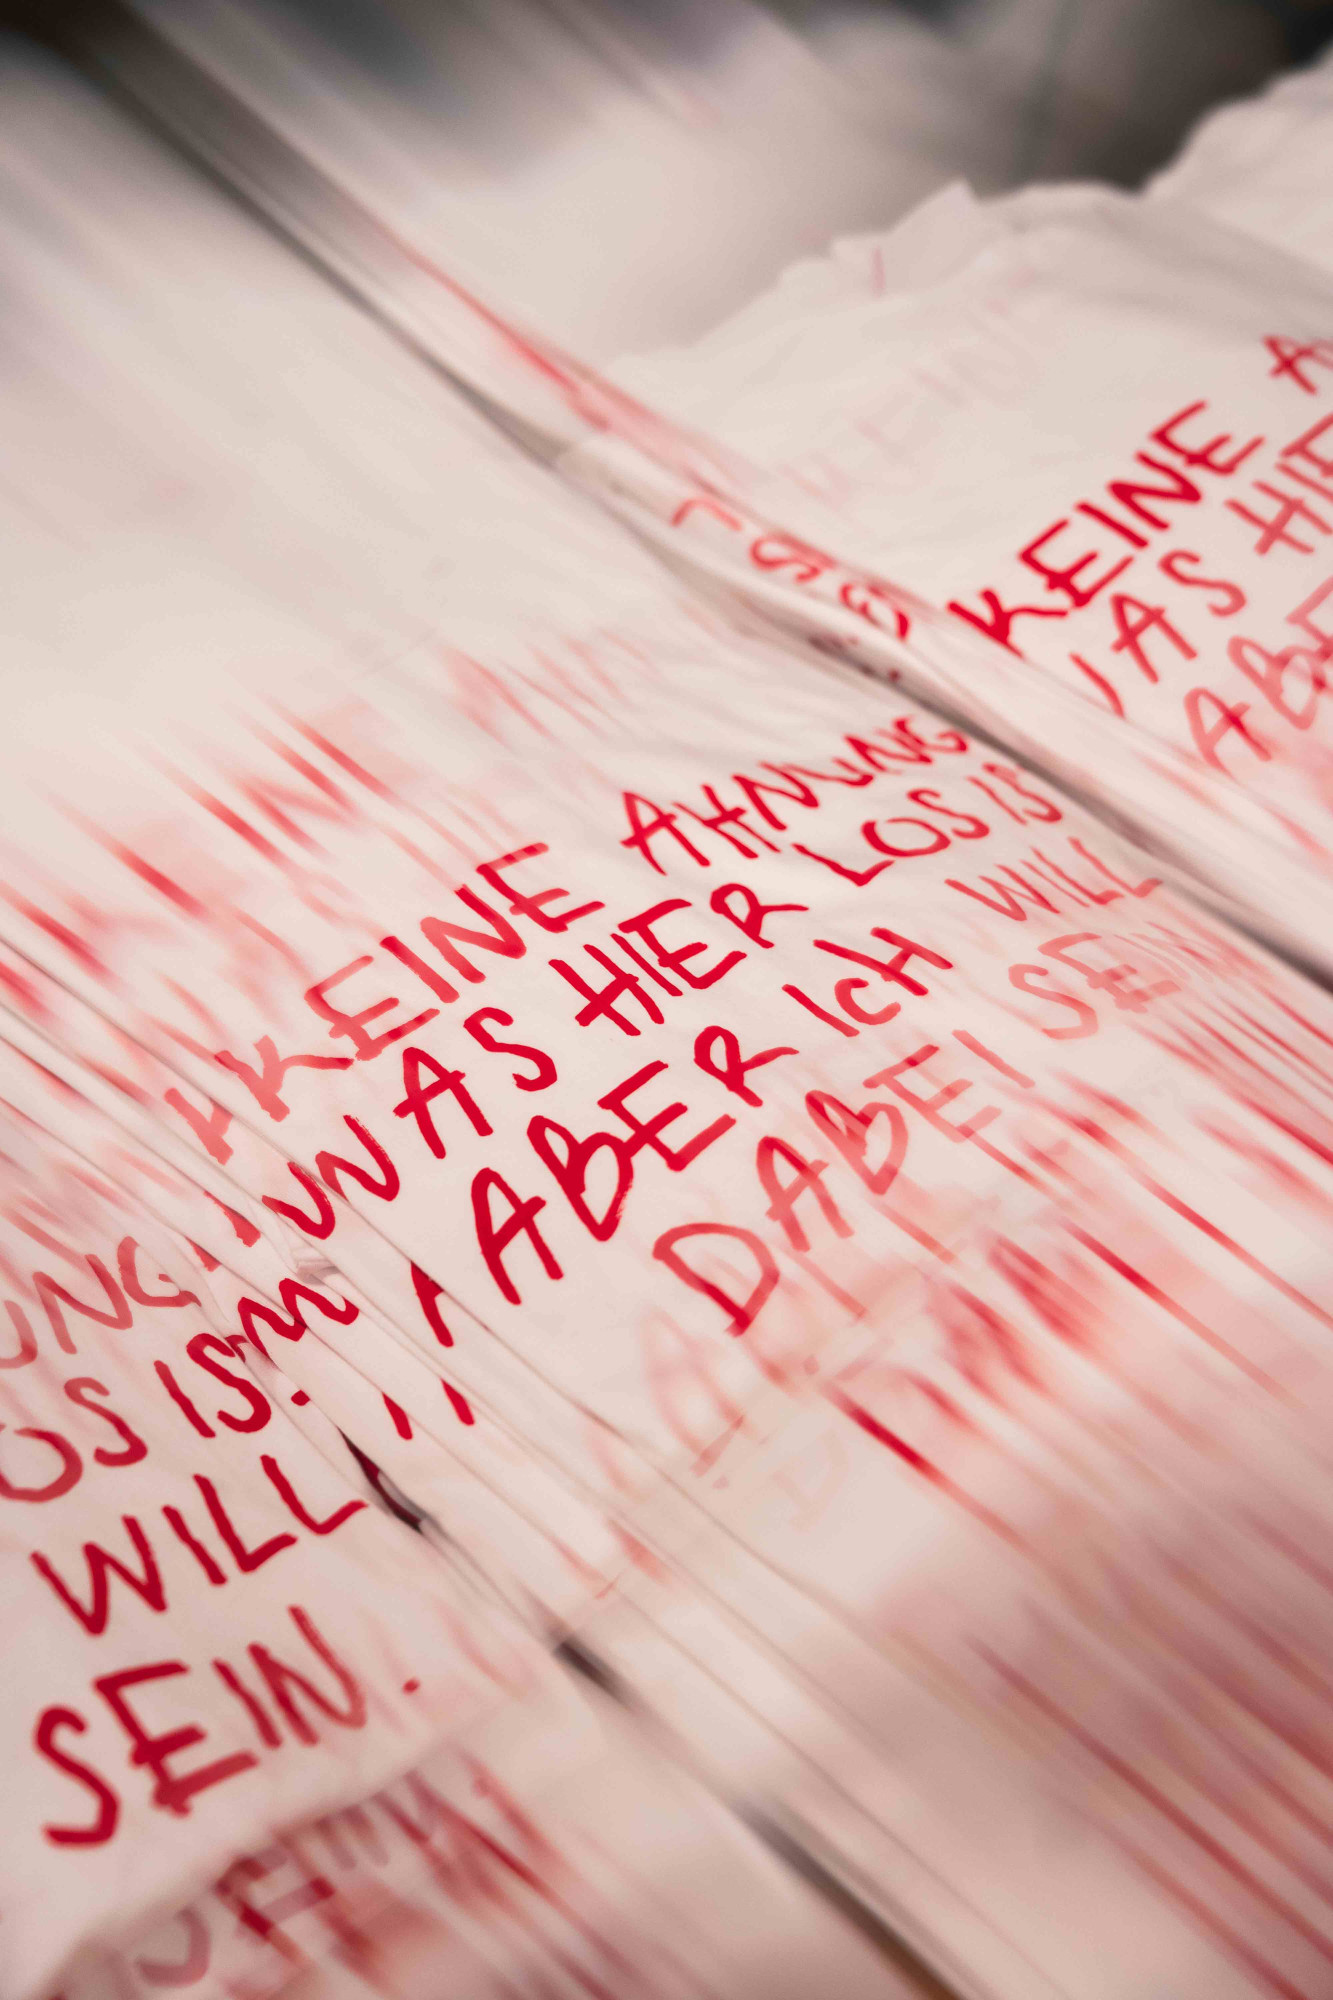 KEINE AHNUNG
WAS HIER LOS IS
ABER ICH WILL
DABEI SEIN
KEINE A
WAS HIE
ABE
UNG
OS IS.
WILL
SEIN.